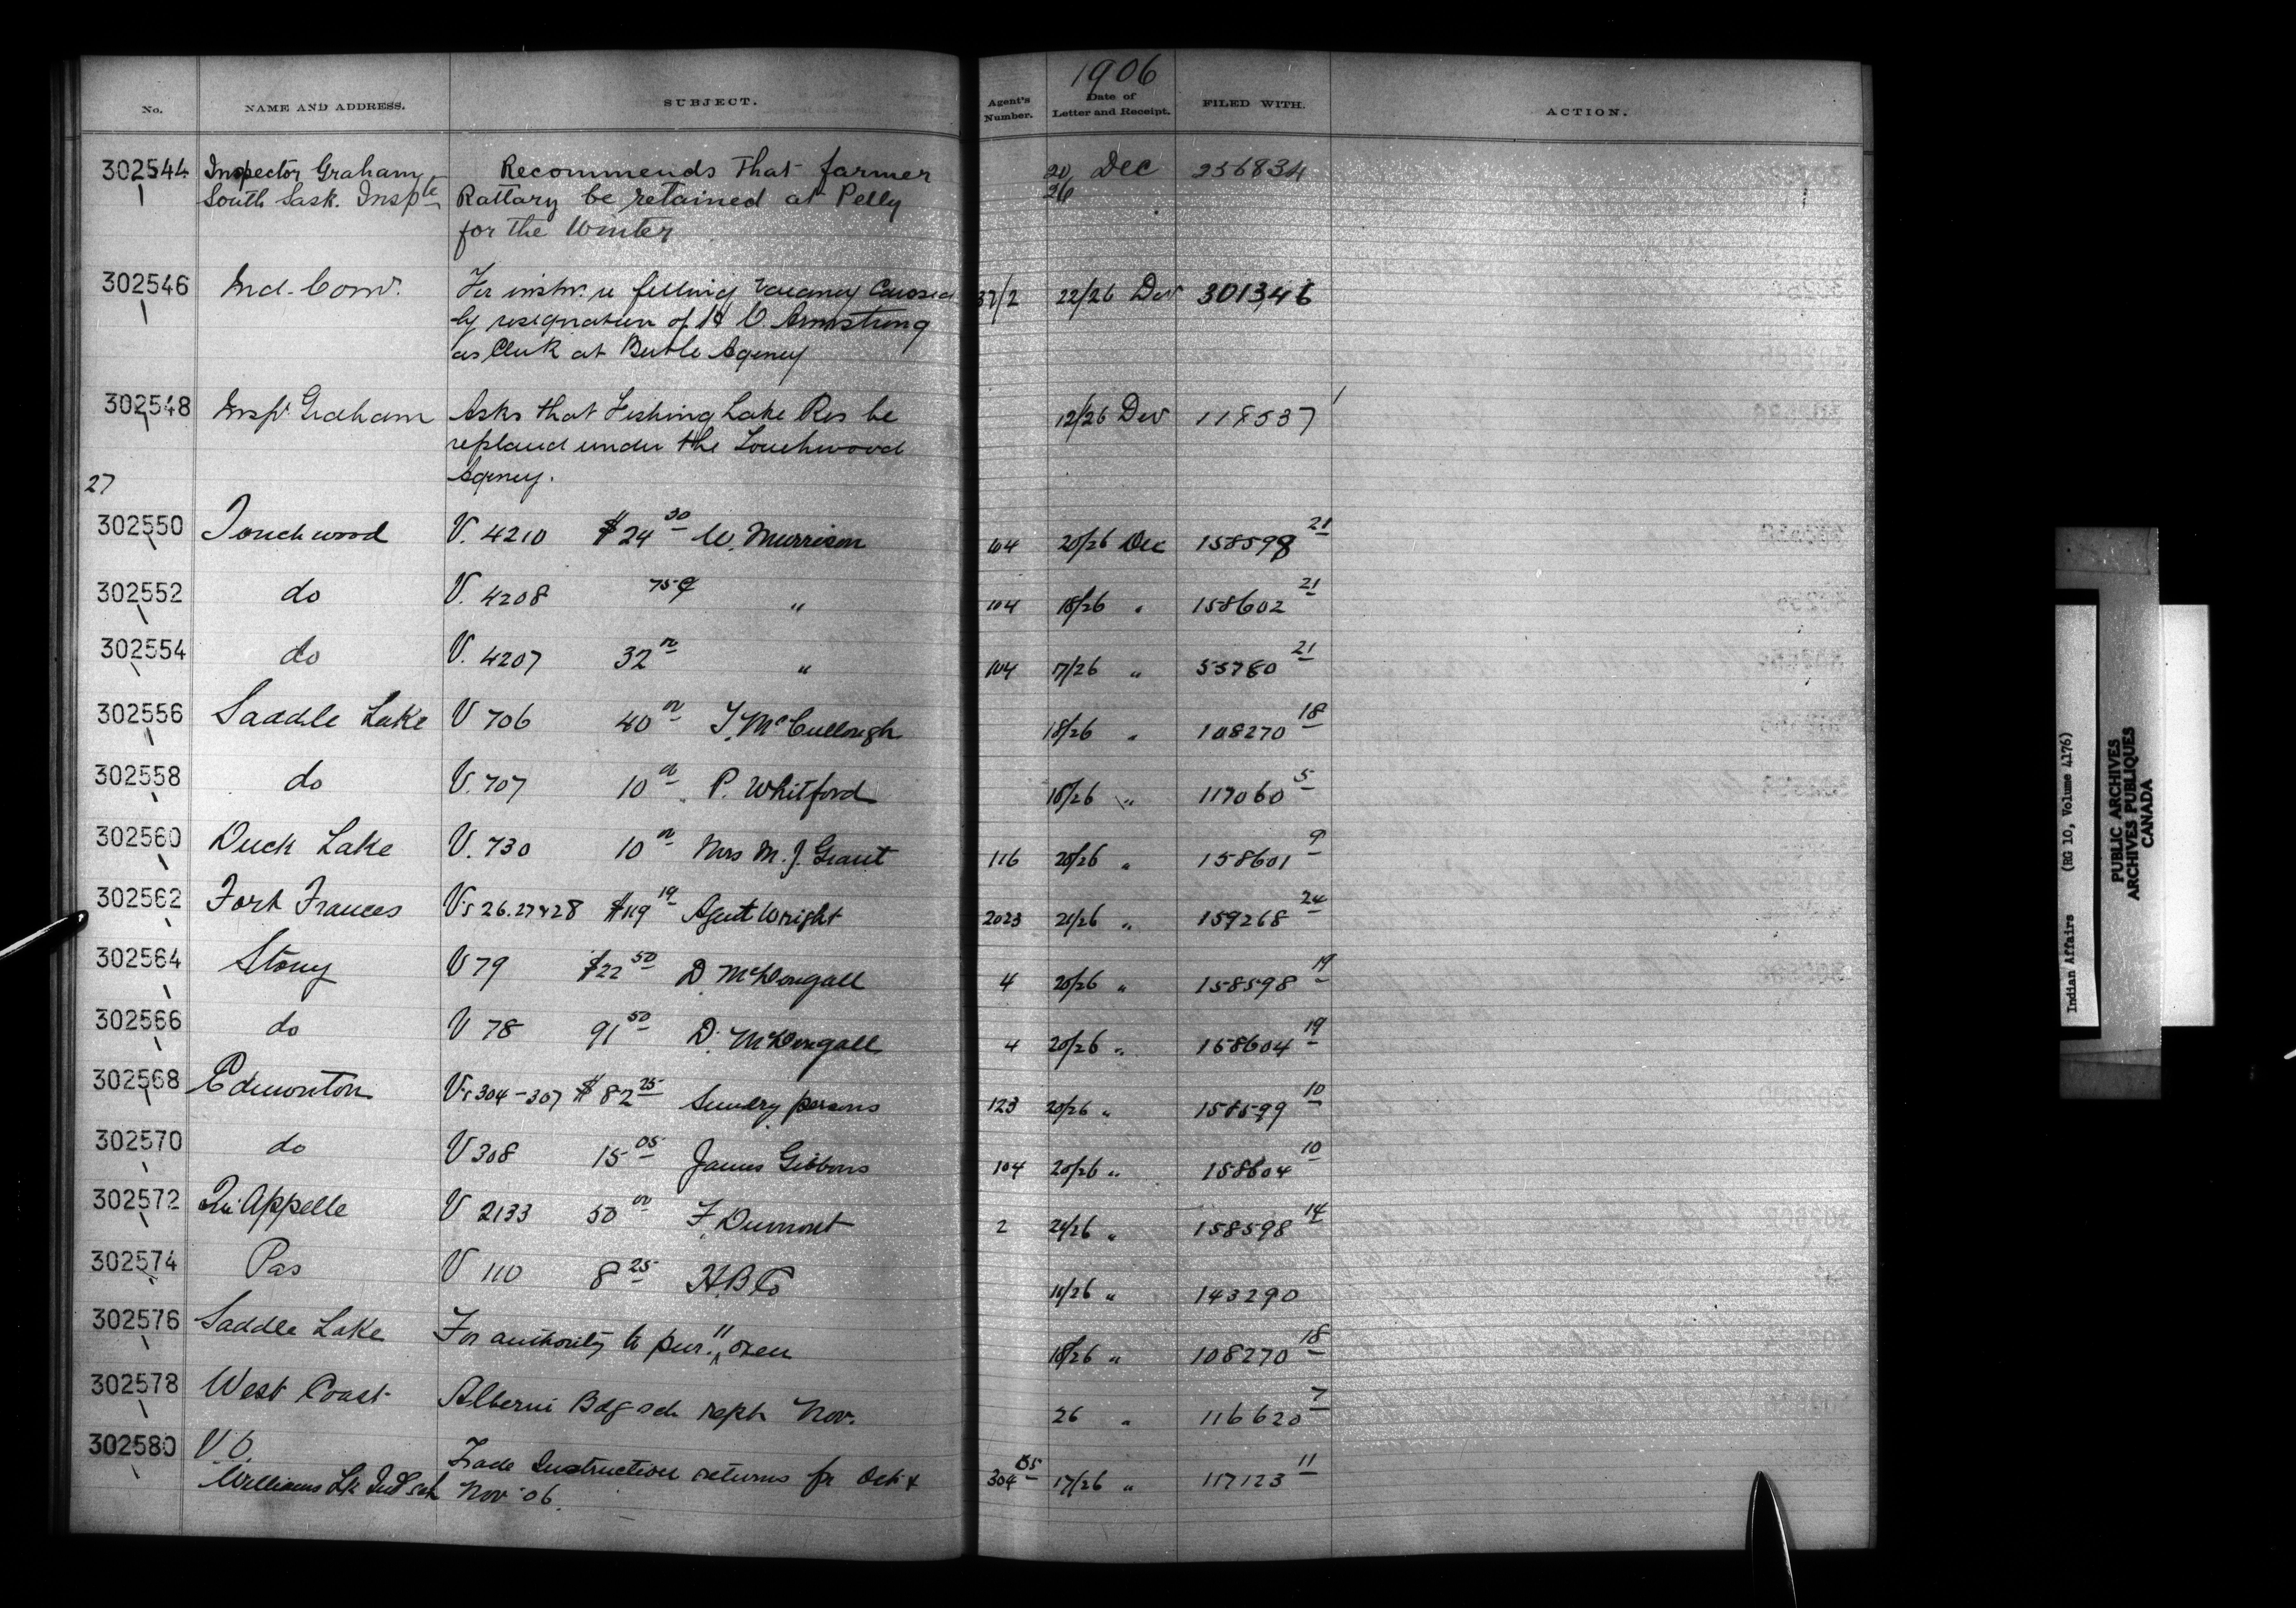 1906
No. NAME AND ADDRESS. SUBJECT. Agent's Number. Date of Letter and Receipt. FILED WITH. ACTION.
302544 Inspector Graham Recommends that farmer 20/26 Dec 256834
South Sask. Inspte Rattary be retained at Pelly
for the Winter
302546 Ind. Com. For instr. re filling vacancy caused 37/2 22/26 Dec 301346
by resignation of H C. Armstrong
as Clerk at Birtle Agency
302548 Inspr Graham Asks that Fishing Lake Res be 12/26 Dec 118537
replaced under the Touchwood
Agency.
27
302550 Touchwood V. 4210 $24 30 W. Murrison 104 20/26 Dec 158599 21
302552 do V. 4208 75¢ " 104 18/26 " 158602 21
302554 do V. 4207 32 " 104 17/26 " 55780 21
302556 Saddle Lake V 706 40 00 J. McCullough 18/26 " 108270 18
302558 do V. 707 10 00 P. Whitford 18/26 " 117060 5
302560 Duck Lake V. 730 10 00 Mrs M. J. Grant 116 20/26 " 158601 9
302562 Fort Frances Vs 26.27 & 28 $119 19 Agent Wright 2023 21/26 " 159268 24
302564 Stony V 79 $22 50 D. McDougall 4 20/26 " 158598 19
302566 do V 78 91 50 D. McDougall 4 20/26 " 158604 19
302568 Edmonton Vs 304-307 $82 25 Sundry persons 123 20/26 " 158599 10
302570 do V 308 15 05 James Gibbons 104 20/26 " 158604 10
302572 Qu'Appelle V 2133 50 00 F. Dumont 2 21/26 " 158598 14
302574 Pas V 110 8 25 H.B Co 11/26 " 143290
302576 Saddle Lake For authority to pur. 11 oxen 18/26 " 108270 18
302578 West Coast Alberni Bdg sch rept Nov. 26 " 116620 7
302580 V. O. Trade Instruction returns for Oct & 304 35 17/26 " 117123 11
Williams Lk Ind sch Nov '06.
Indian Affairs (RG 10, Volume 4176)
PUBLIC ARCHIVES
ARCHIVES PUBLIQUES
CANADA